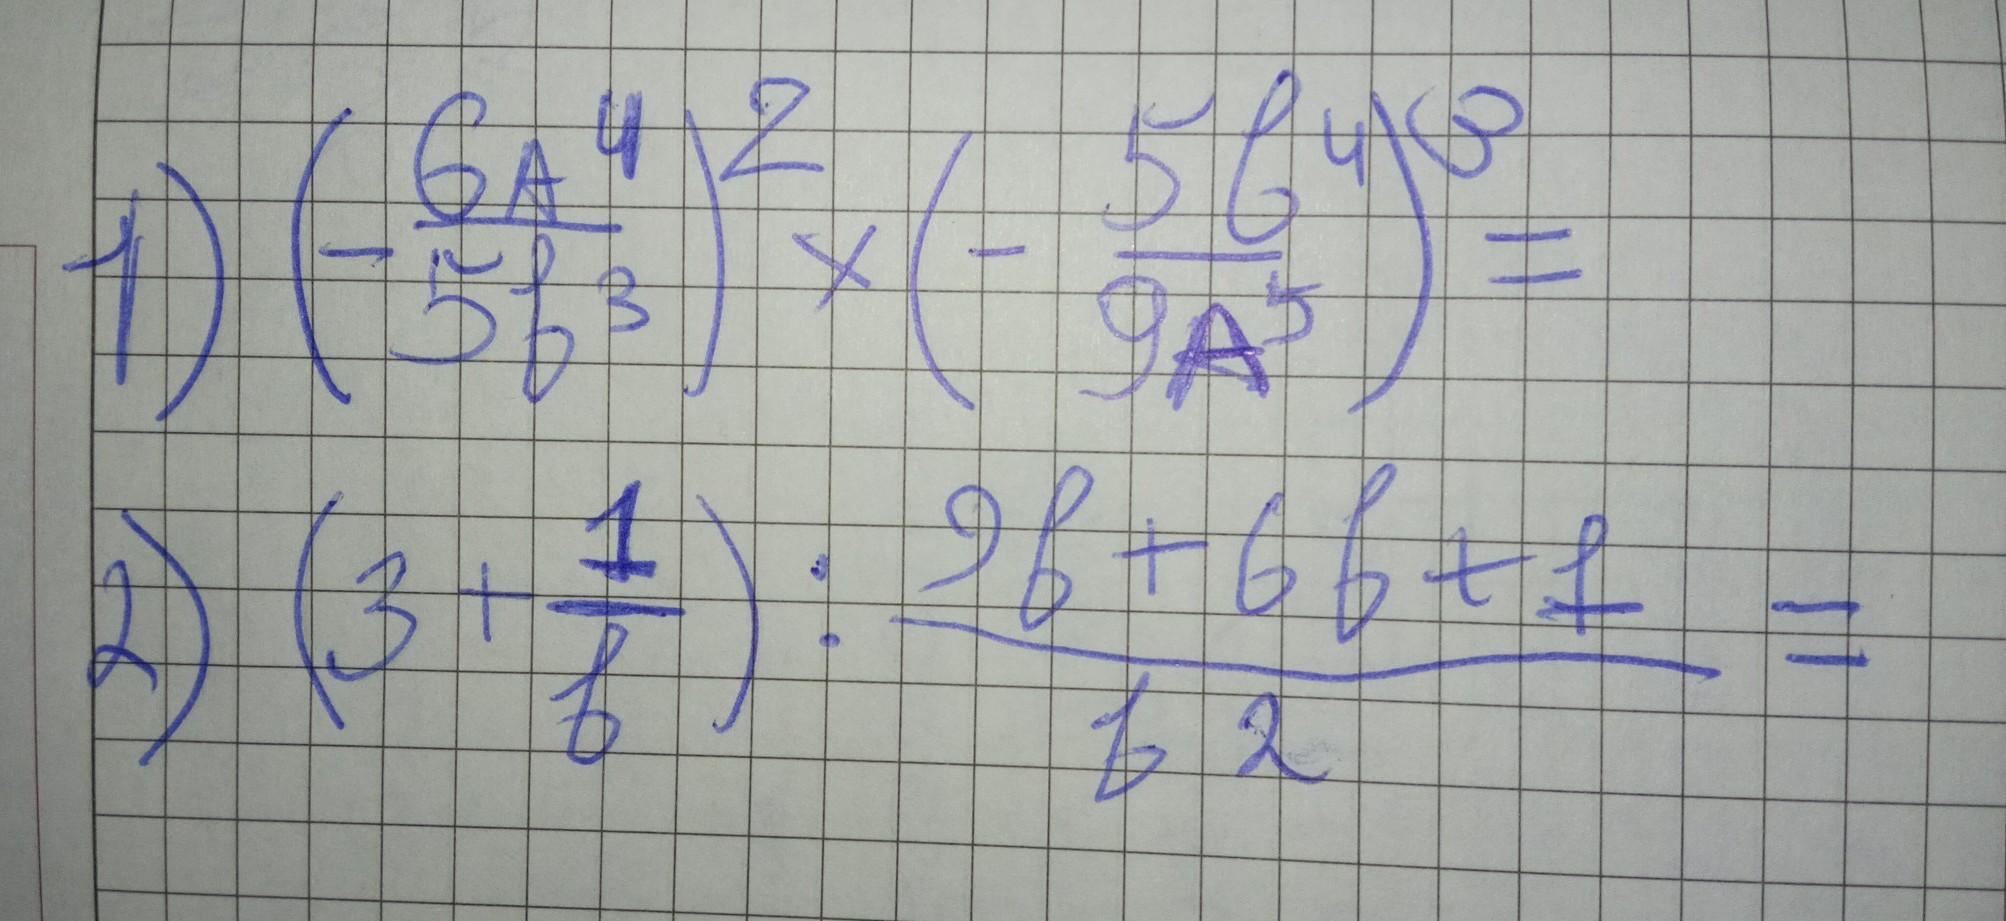 1) (- 6A⁴/5b³)² × (- 5b⁴/9A⁵)³ =
2) (3 + 1/b) : 9b + 6b + 1/b2 =